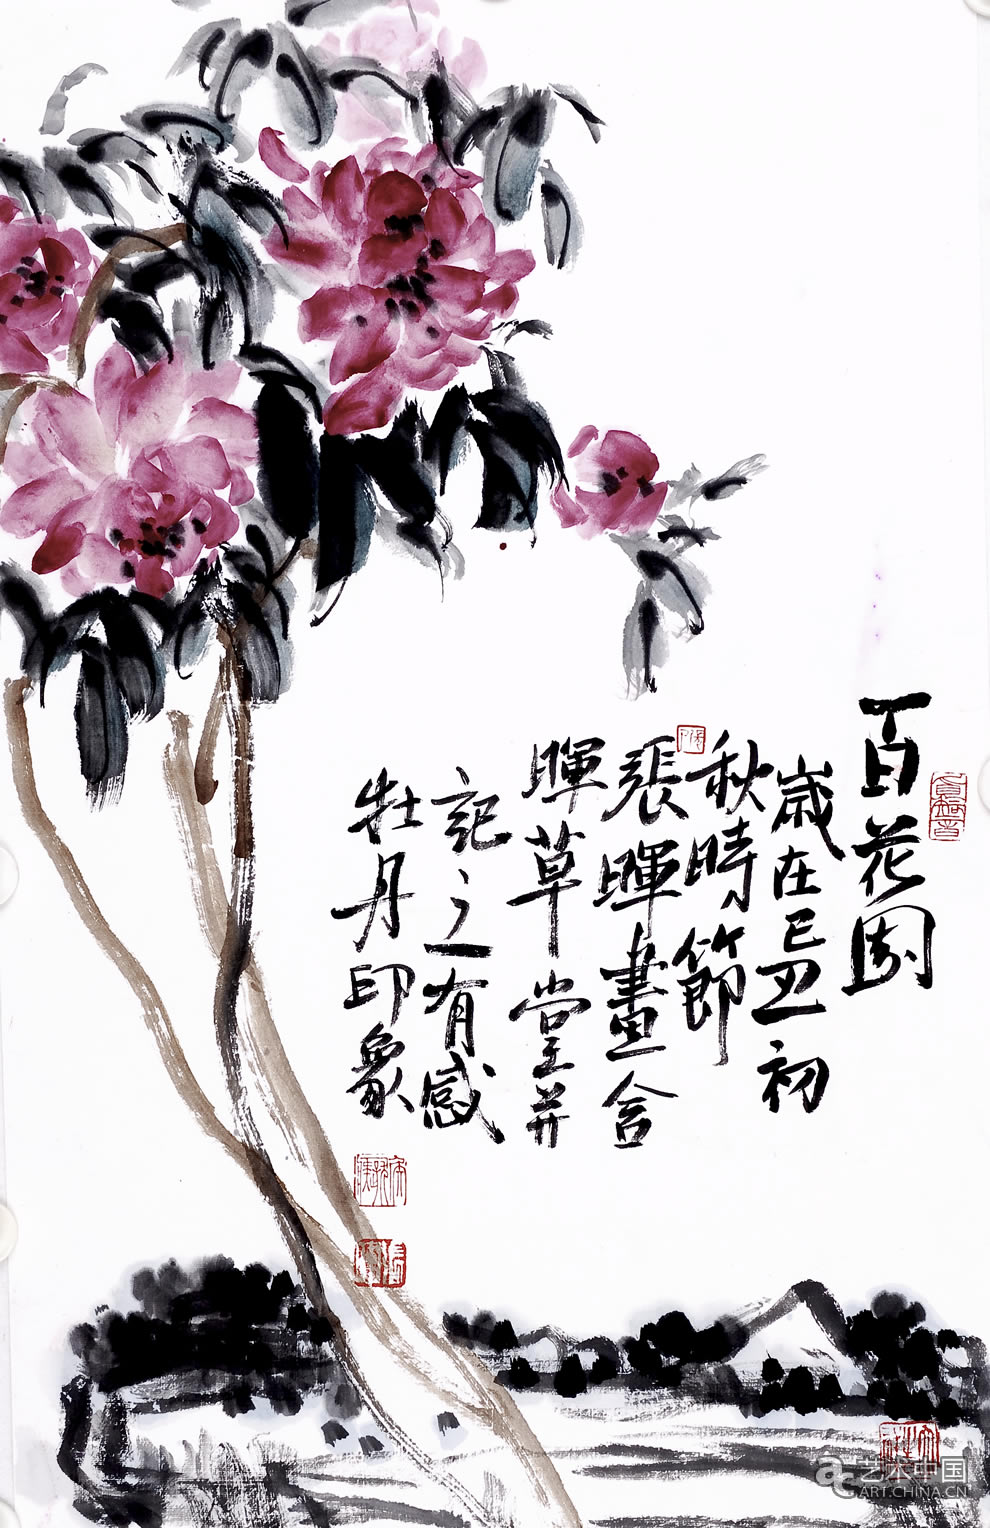 百花園
歲在己丑初
秋時節
張暉畫舍
暉草堂並
記之有感
牡丹印象
艺术中国
ART.CHINA.CN